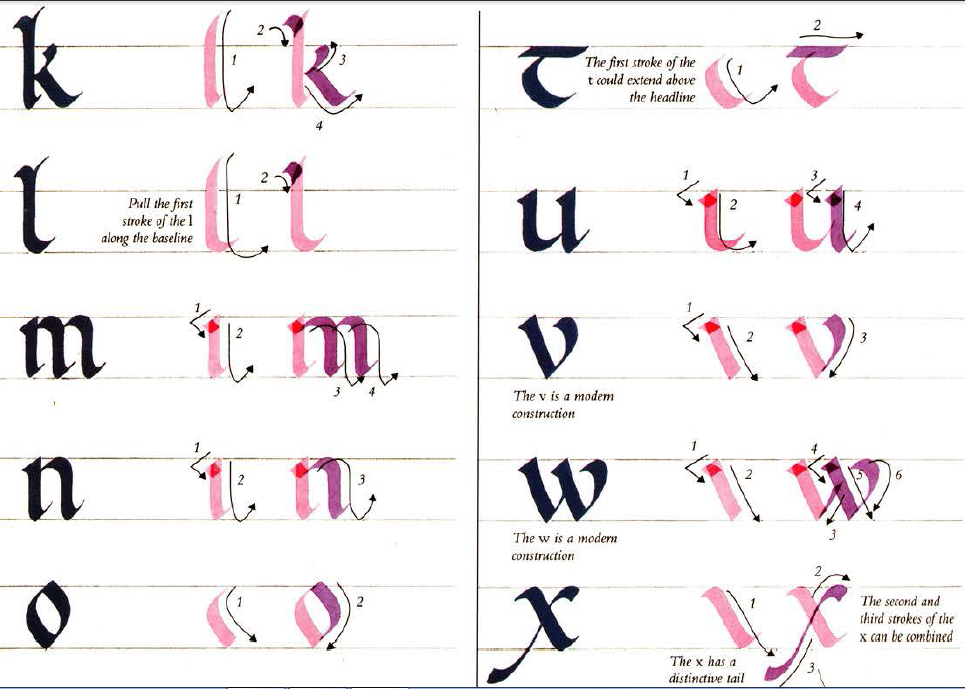 k 1 2 3 4
l 1 2
Pull the first
stroke of the l
along the baseline
m 1 2 3 4
n 1 2 3
o 1 2
t 1 2
The first stroke of the
t could extend above
the headline
u 1 2 3 4
v 1 2 3
The v is a modern
construction
w 1 2 3 4 5 6
The w is a modern
construction
x 1 2 3
The second and
third strokes of the
x can be combined
The x has a
distinctive tail